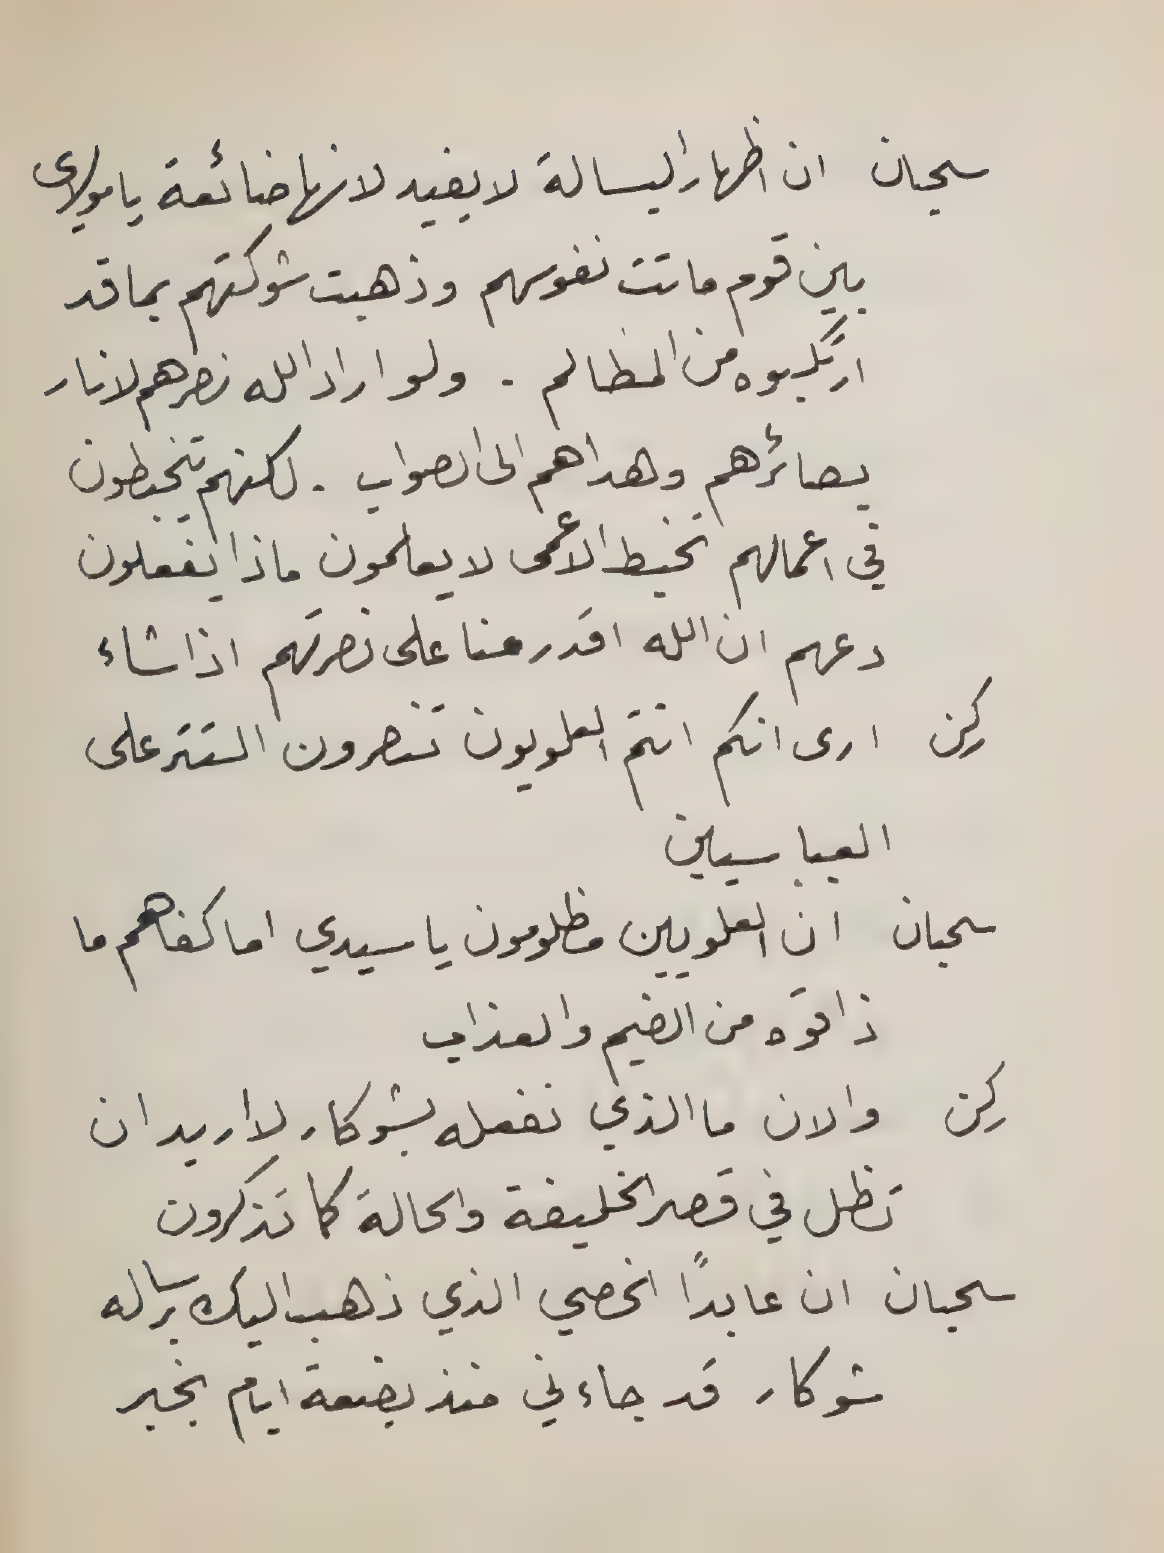 سحبان ان اظهار البسالة لا يفيد لانها ضائعة يا مولاى
بين قوم ماتت نفوسهم وذهبت شوكتهم بما قد
ارتكبوه من المظالم . ولو اراد الله نصرهم لانار
بصائرهم وهداهم الى الصواب . لكنهم يتخبطون
في اعمالهم تخبط الاعمى لا يعلمون ماذا يفعلون
دعهم ان الله اقدر منا على نصرتهم اذا شاء
ركن ارى انكم انتم العلويون تنصرون التتر على
العباسيين
سحبان ان العلويين مظلومون يا سيدي اما كفاهم ما
ذاقوه من الضيم والعذاب
ركن والان ما الذي نفعله بشوكار لا اريد ان
تظل في قصر الخليفة والحالة كما تذكرون
سحبان ان عابدًا الخصي الذي ذهب اليك برساله
شوكار قد جاءني منذ بضعة ايام بخبر